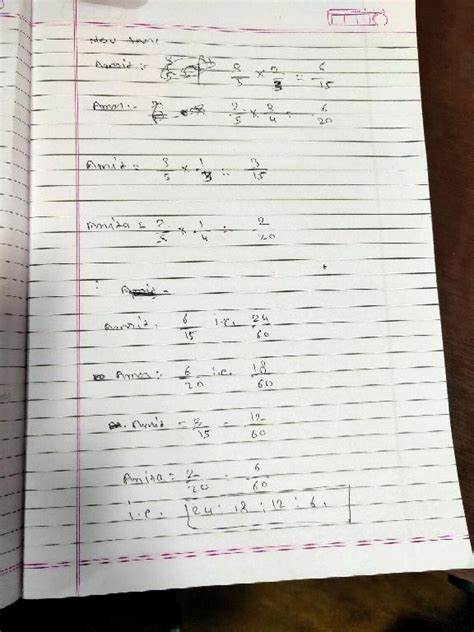 Amrit:- 3/5 × 2/3 = 6/15
Amar:- 2/5 × 3/4 = 6/20
Amit = 3/5 × 1/3 = 3/15
Amita = 2/5 × 1/4 = 2/20
Amrit. 6/15 i.e. 24/60
Amar: 6/20 i.e. 18/60
Amit = 3/15 = 12/60
Amita = 2/20 = 6/60
i.e. 24 : 18 : 12 : 6.